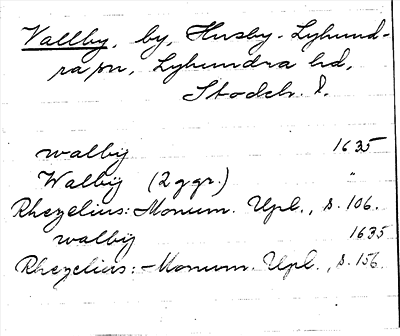 Vallby, by, Husby-Lyhund-
ra sn, Lyhundra hd,
Stockh. l.
walby 1635
Walbÿ (2 ggr.) "
Rhezelius: Monum. Upl., s. 106.
walby 1635
Rhezelius: Monum. Upl., s. 156.